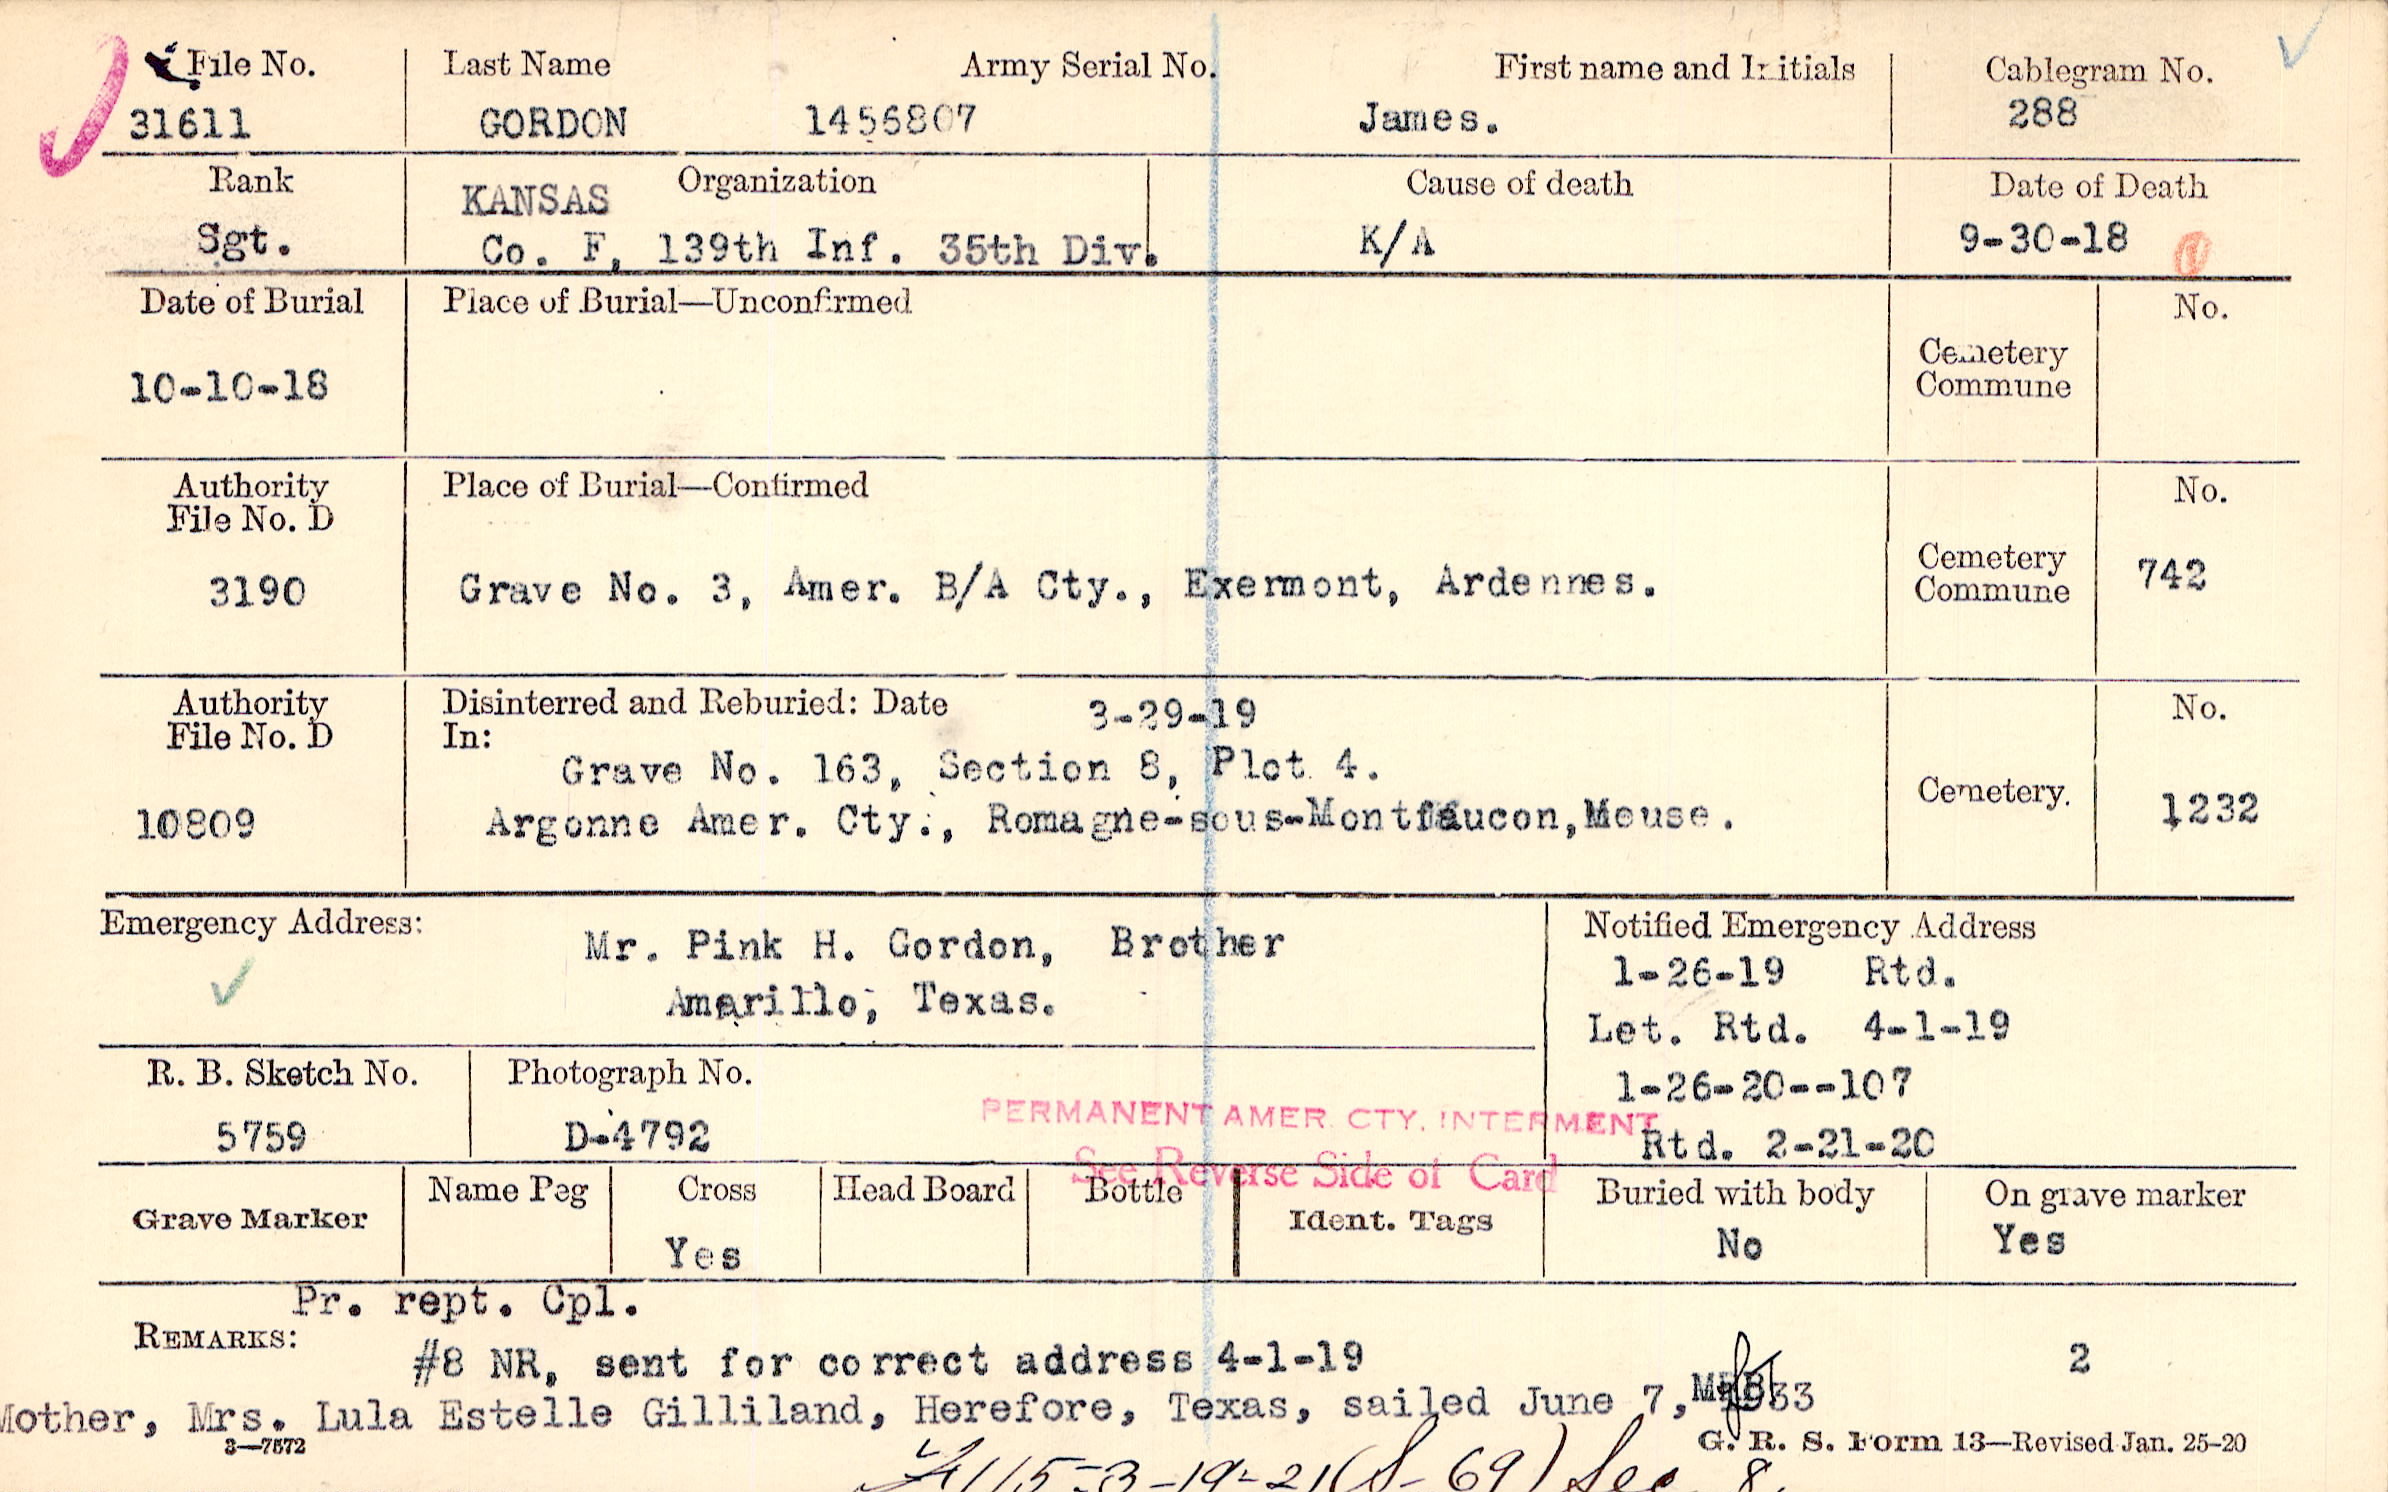 File No. Last Name Army Serial No. First name and Initials Cablegram No.
31611 GORDON 1456807 James. 288
Rank KANSAS Organization Cause of death Date of Death
Sgt. Co. F, 139th Inf. 35th Div. K/A 9-30-18
Date of Burial Place of Burial—Unconfirmed No.
Cemetery
Commune
10-10-18
Authority Place of Burial—Confirmed No.
File No. D
Cemetery
Commune
3190 Grave No. 3, Amer. B/A Cty., Exermont, Ardennes. 742
Authority Disinterred and Reburied: Date 3-29-19 No.
File No. D In:
Grave No. 163, Section 8, Plot 4.
Cemetery.
10809 Argonne Amer. Cty., Romagne-sous-Montfaucon,Meuse. 1232
Emergency Address: Mr. Pink H. Gordon, Brother
Amarillo, Texas.
Notified Emergency Address
1-26-19 Rtd.
Let. Rtd. 4-1-19
1-26-20--107
Rtd. 2-21-20
R. B. Sketch No. Photograph No.
5759 D-4792
PERMANENT AMER. CTY. INTERMENT
See Reverse Side of Card
Grave Marker Name Peg Cross Head Board Bottle Ident. Tags Buried with body On grave marker
Yes No Yes
Pr. rept. Cpl.
REMARKS:
#8 NR, sent for correct address 4-1-19 2
Mother, Mrs. Lula Estelle Gilliland, Herefore, Texas, sailed June 7, 1933
3—7572 G. R. S. Form 13—Revised Jan. 25-20
(S-69) Sec. 8.